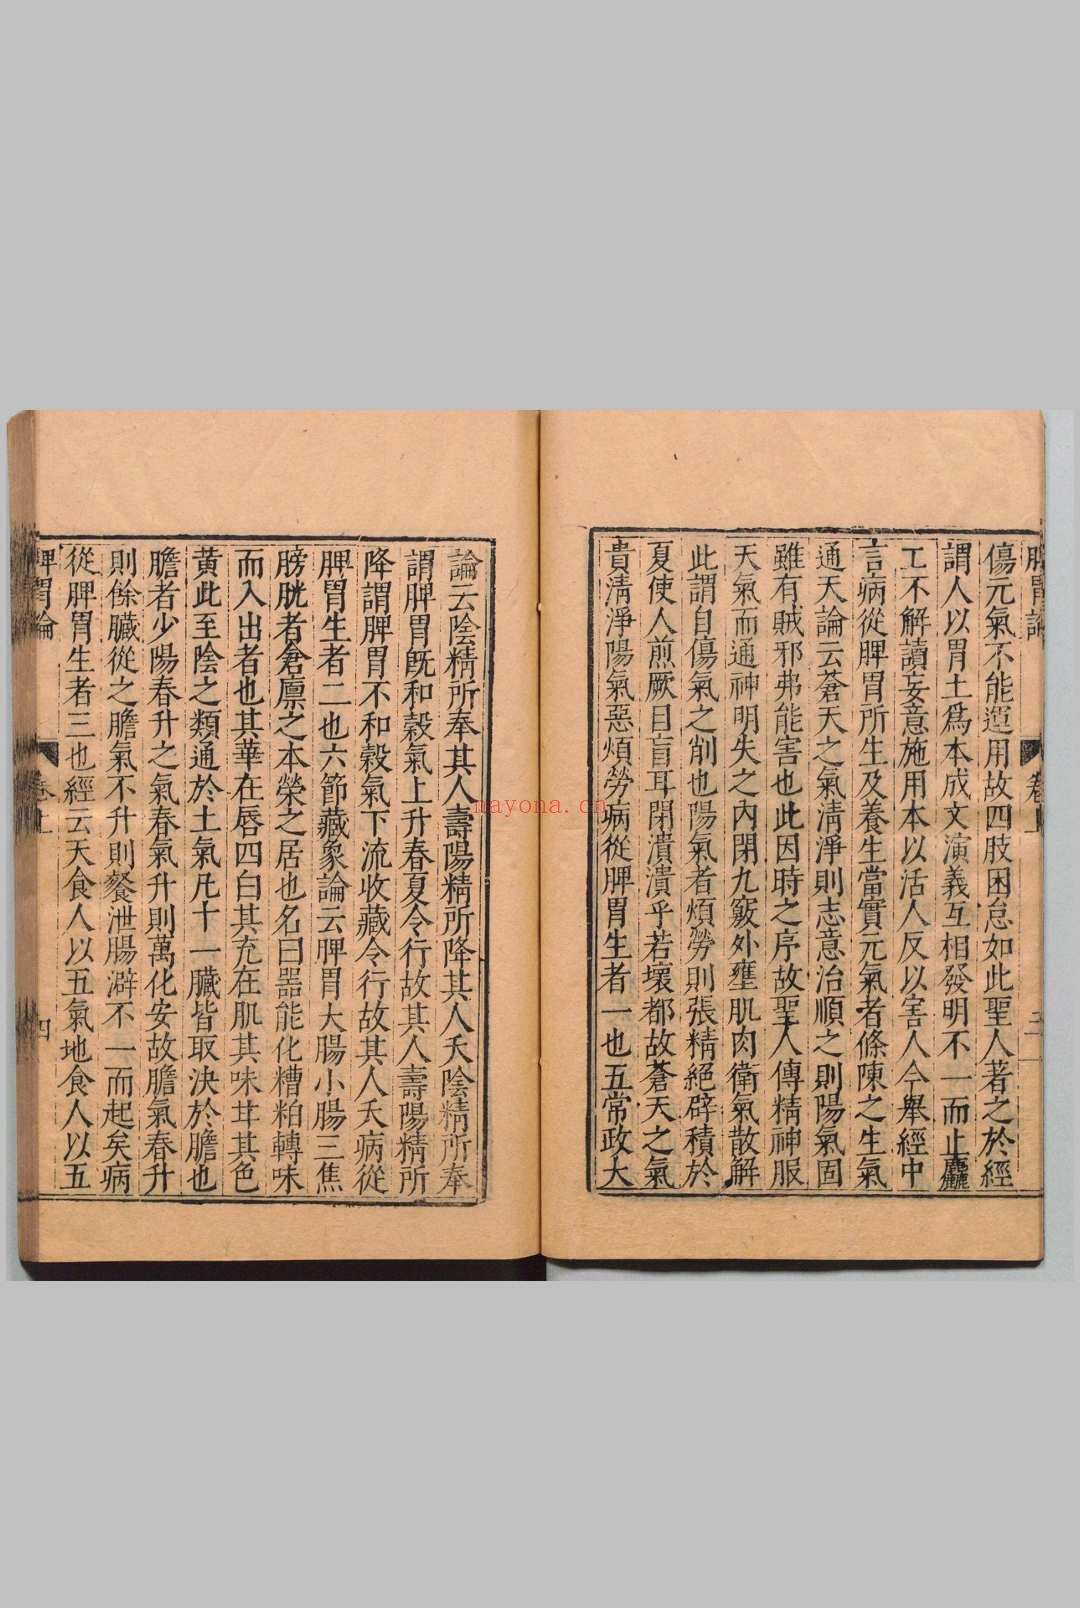 脾胃論
卷上
三
傷元氣不能運用故四肢困怠如此聖人著之於經
謂人以胃土爲本成文演義互相發明不一而止麤
工不解讀妄意施用本以活人反以害人今舉經中
言病從脾胃所生及養生當實元氣者條陳之生氣
通天論云蒼天之氣清淨則志意治順之則陽氣固
雖有賊邪弗能害也此因時之序故聖人傳精神服
天氣而通神明失之內閉九竅外壅肌肉衛氣散解
此謂自傷氣之削也陽氣者煩勞則張精絕辟積於
夏使人煎厥目盲耳閉潰潰乎若壞都故蒼天之氣
貴清淨陽氣惡煩勞病從脾胃生者一也五常政大
論云陰精所奉其人壽陽精所降其人夭陰精所奉
謂脾胃既和穀氣上升春夏令行故其人壽陽精所
降謂脾胃不和穀氣下流收藏令行故其人夭病從
脾胃生者二也六節藏象論云脾胃大腸小腸三焦
膀胱者倉廪之本榮之居也名曰器能化糟粕轉味
而入出者也其華在唇四白其充在肌其味甘其色
黄此至陰之類通於土氣凡十一臟皆取決於膽也
膽者少陽春升之氣春氣升則萬化安故膽氣春升
則餘臟從之膽氣不升則飱泄腸澼不一而起矣病
從脾胃生者三也經云天食人以五氣地食人以五
脾胃論
卷上
四
nayona.cn